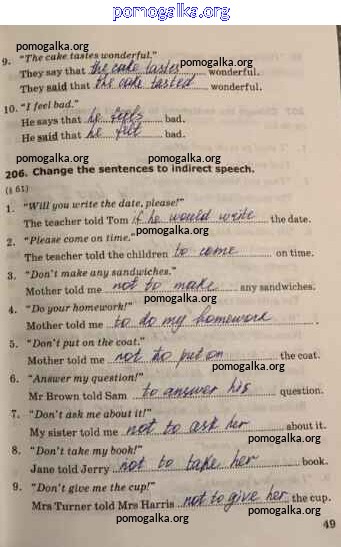 pomogalka.org
9. "The cake tastes wonderful." pomogalka.org
pomogalka.org
They say that the cake tastes wonderful.
They said that the cake tasted wonderful.
pomogalka.org
10. "I feel bad."
He says that he feels bad.
He said that he felt bad.
pomogalka.org pomogalka.org
206. Change the sentences to indirect speech.
(§ 61) pomogalka.org
1. "Will you write the date, please!"
The teacher told Tom if he would write the date.
2. "Please come on time." pomogalka.org
The teacher told the children to come on time.
3. "Don't make any sandwiches."
Mother told me not to make any sandwiches.
pomogalka.org
4. "Do your homework!"
Mother told me to do my homework.
5. "Don't put on the coat." pomogalka.org
Mother told me not to put on the coat.
pomogalka.org
6. "Answer my question!"
Mr Brown told Sam to answer his question.
7. "Don't ask me about it!"
My sister told me not to ask her about it.
pomogalka.org
8. "Don't take my book!"
Jane told Jerry not to take her book.
pomogalka.org
9. "Don't give me the cup!"
Mrs Turner told Mrs Harris not to give her the cup.
pomogalka.org pomogalka.org
49